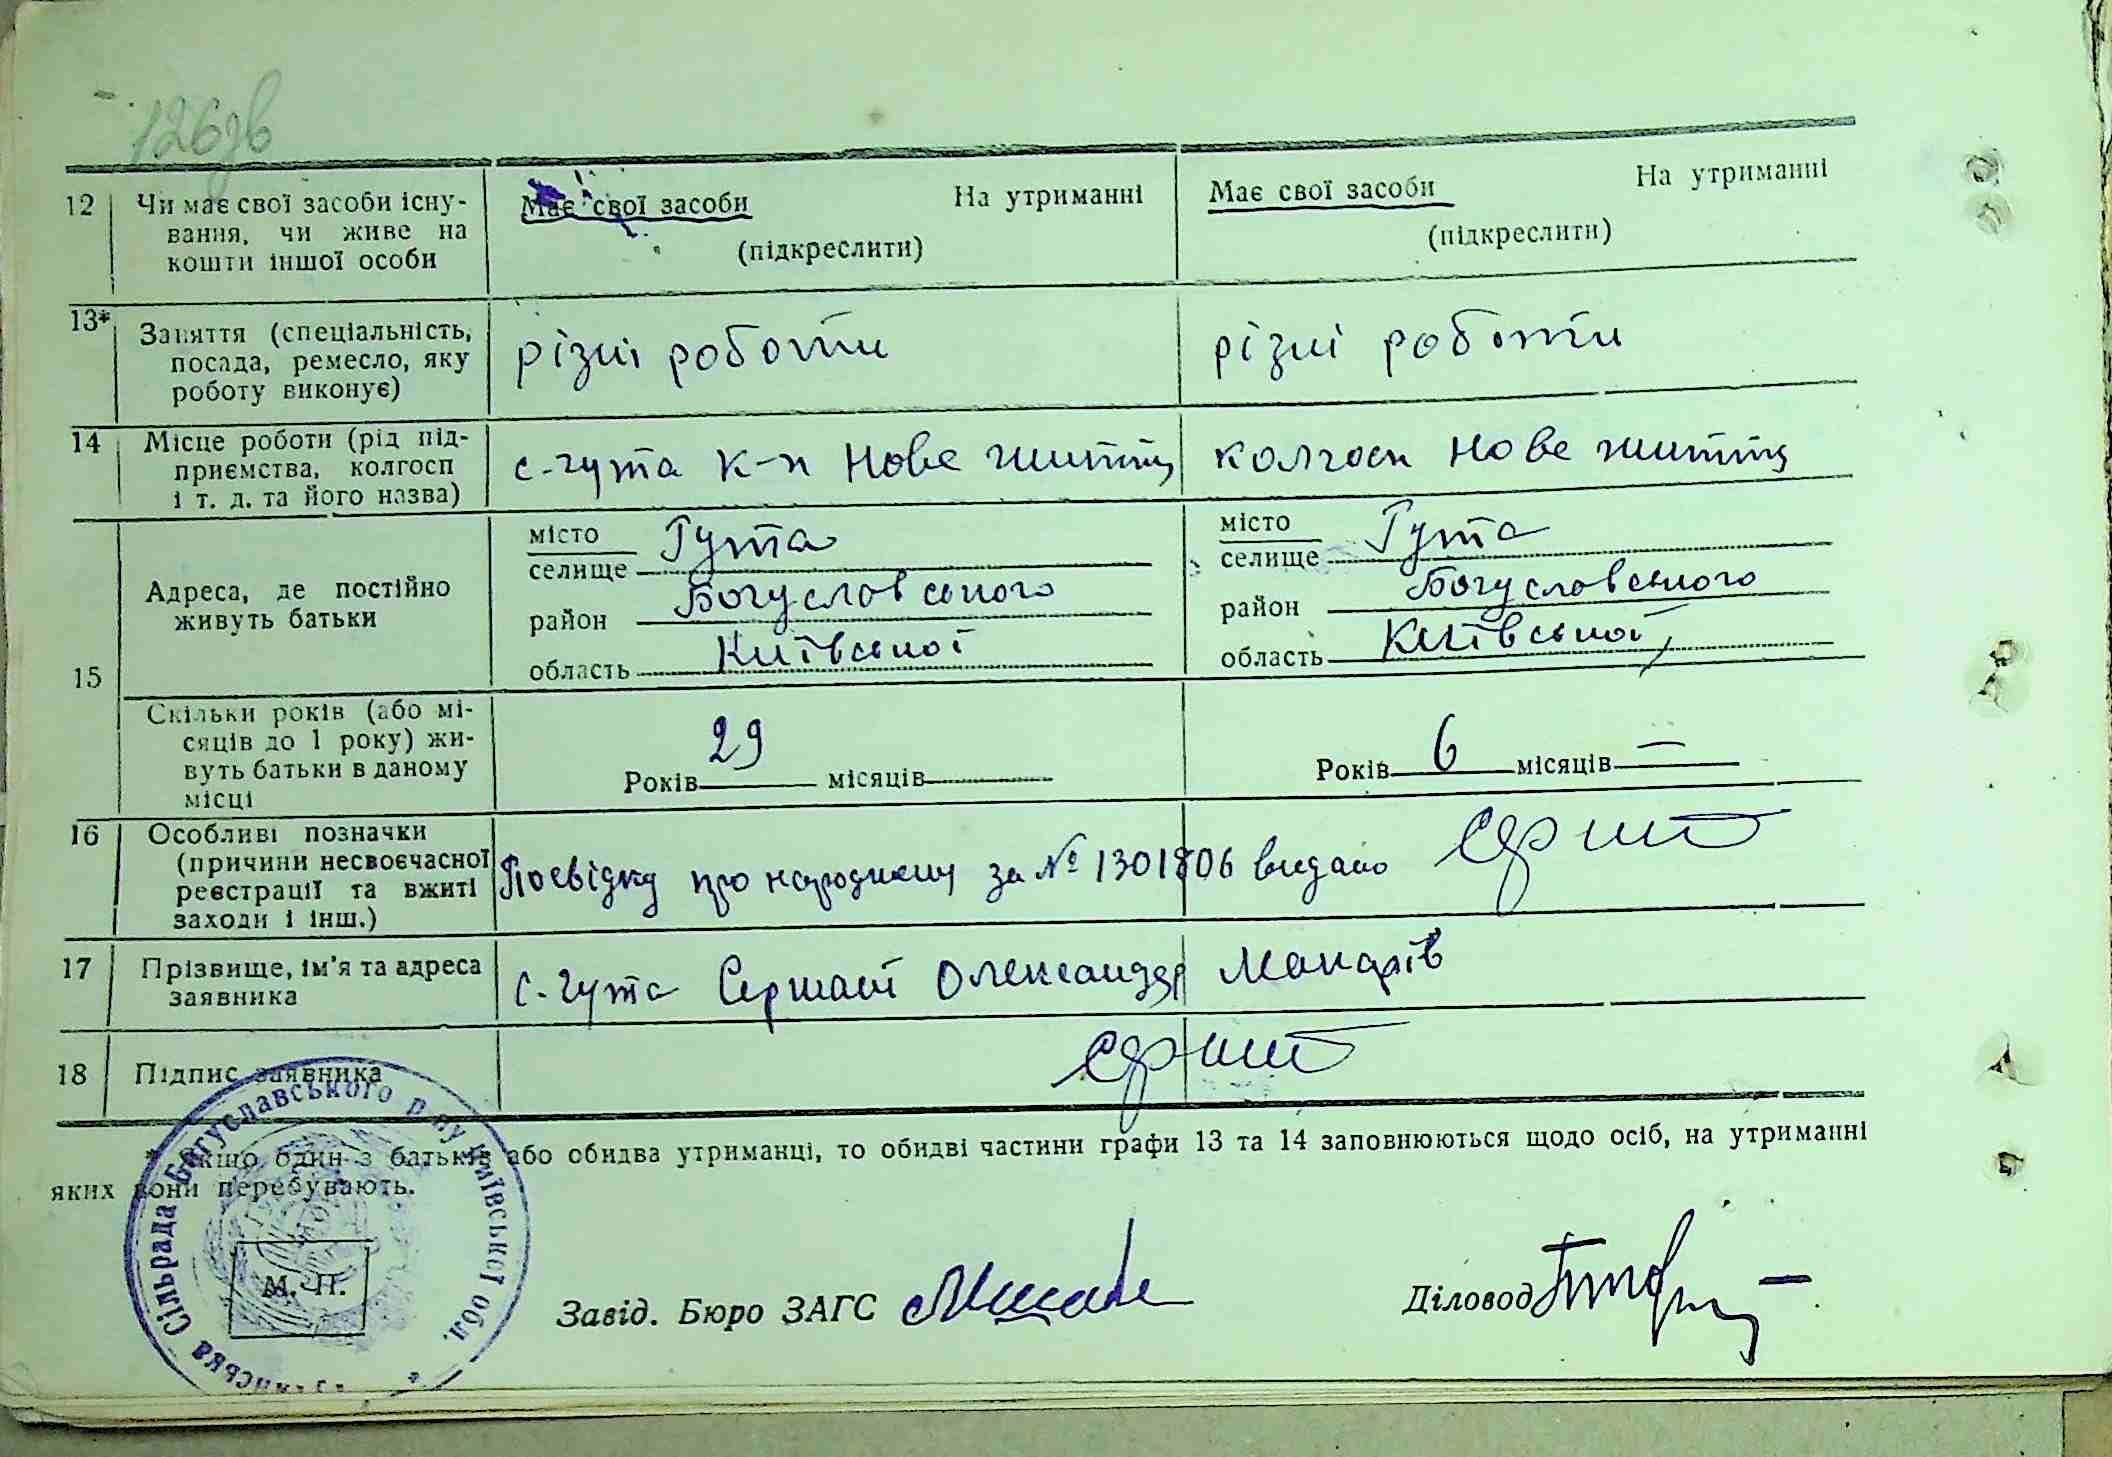 126зв
12 Чи має свої засоби існу- Має свої засоби На утриманні Має свої засоби На утриманні
вання, чи живе на (підкреслити) (підкреслити)
кошти іншої особи
13* Заняття (спеціальність, різні роботи різні роботи
посада, ремесло, яку
роботу виконує)
14 Місце роботи (рід під- с-гута к-п Нове життя колгосп Нове життя
приємства, колгосп
і т. д. та його назва)
15 Адреса, де постійно
живуть батьки
місто Гута місто Гута
селище селище
район Богуславського район Богуславського
область Київської область Київської
Скільки років (або мі-
сяців до 1 року) жи-
вуть батьки в даному
місці
Років 29 місяців Років 6 місяців —
16 Особливі позначки
(причини несвоєчасної
реєстрації та вжиті
заходи і інш.)
Посвідку про народження за № 1301806 видано
17 Прізвище, ім'я та адреса
заявника
с-гута Сержант Олександр Макарів
18 Підпис заявника
* Якщо один з батьків або обидва утриманці, то обидві частини графи 13 та 14 заповнюються щодо осіб, на утриманні
яких вони перебувають.
Сільрада Богуславського р-ну Київської обл.
М. П.
Завід. Бюро ЗАГС
Діловод